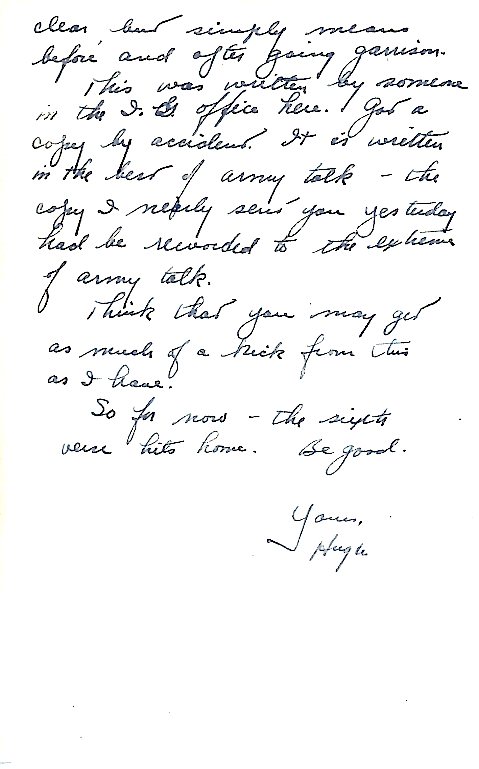 clear but simply means
before and after going garrison.
This was written by someone
in the I.G. office here. Got a
copy by accident. It is written
in the best of army talk - the
copy I nearly sent you yesterday
had be reworded to the extreme
of army talk.
Think that you may get
as much of a kick from this
as I have.
So for now - the sixth
verse hits home. Be good.
Yours,
Hugh